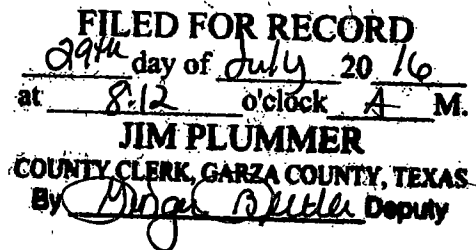 FILED FOR RECORD
29th day of July 20 16
at 8:12 o'clock A M.
JIM PLUMMER
COUNTY CLERK, GARZA COUNTY, TEXAS
By Deputy